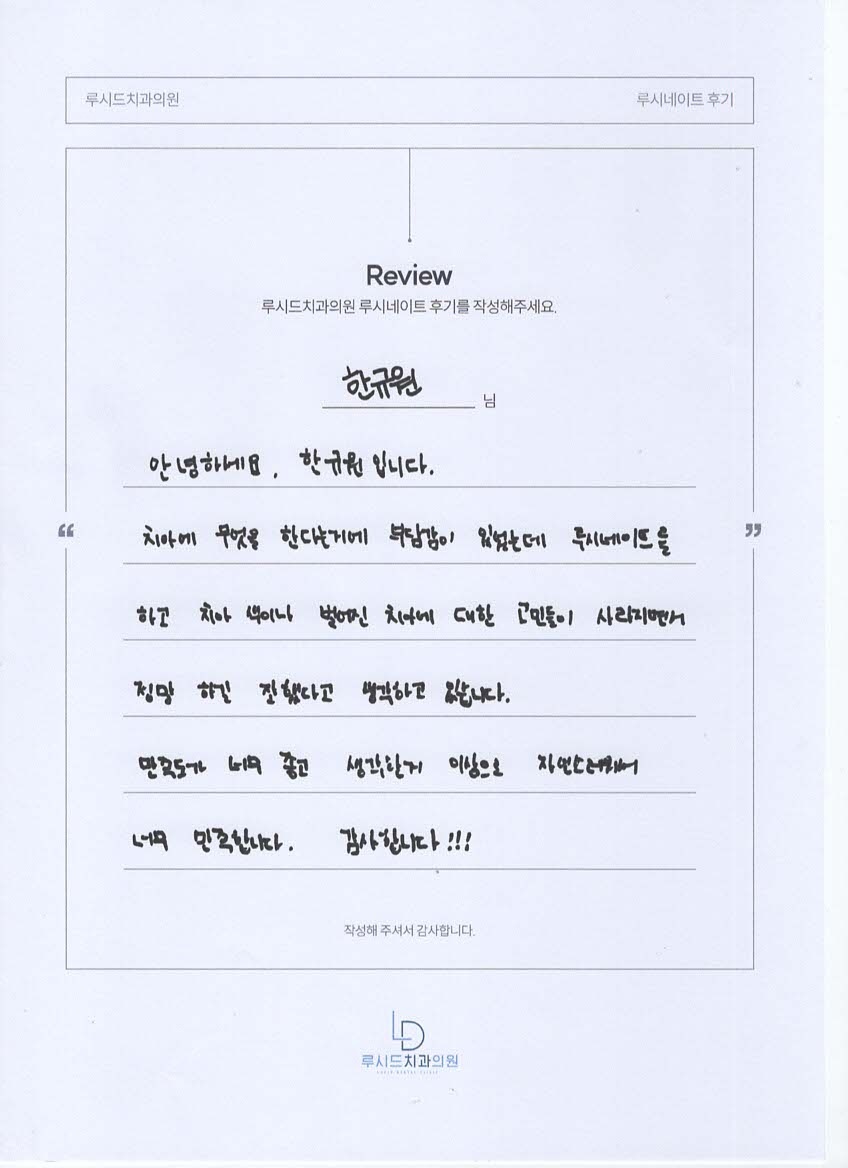 루시드치과의원 루시네이트 후기
Review
루시드치과의원 루시네이트 후기를 작성해주세요.
한규원 님
안녕하세요, 한규원 입니다.
치아에 무엇을 한다는거에 부담감이 있었는데 루시네이트를
하고 치아 색이나 벌어진 치아에 대한 고민들이 사라지면서
정말 하길 잘했다고 생각하고 있습니다.
만족도가 너무 좋고 생각한거 이상으로 자연스러워서
너무 만족합니다. 감사합니다!!!
“ ”
작성해 주셔서 감사합니다.
LD
루시드치과의원
LUCID DENTAL CLINIC